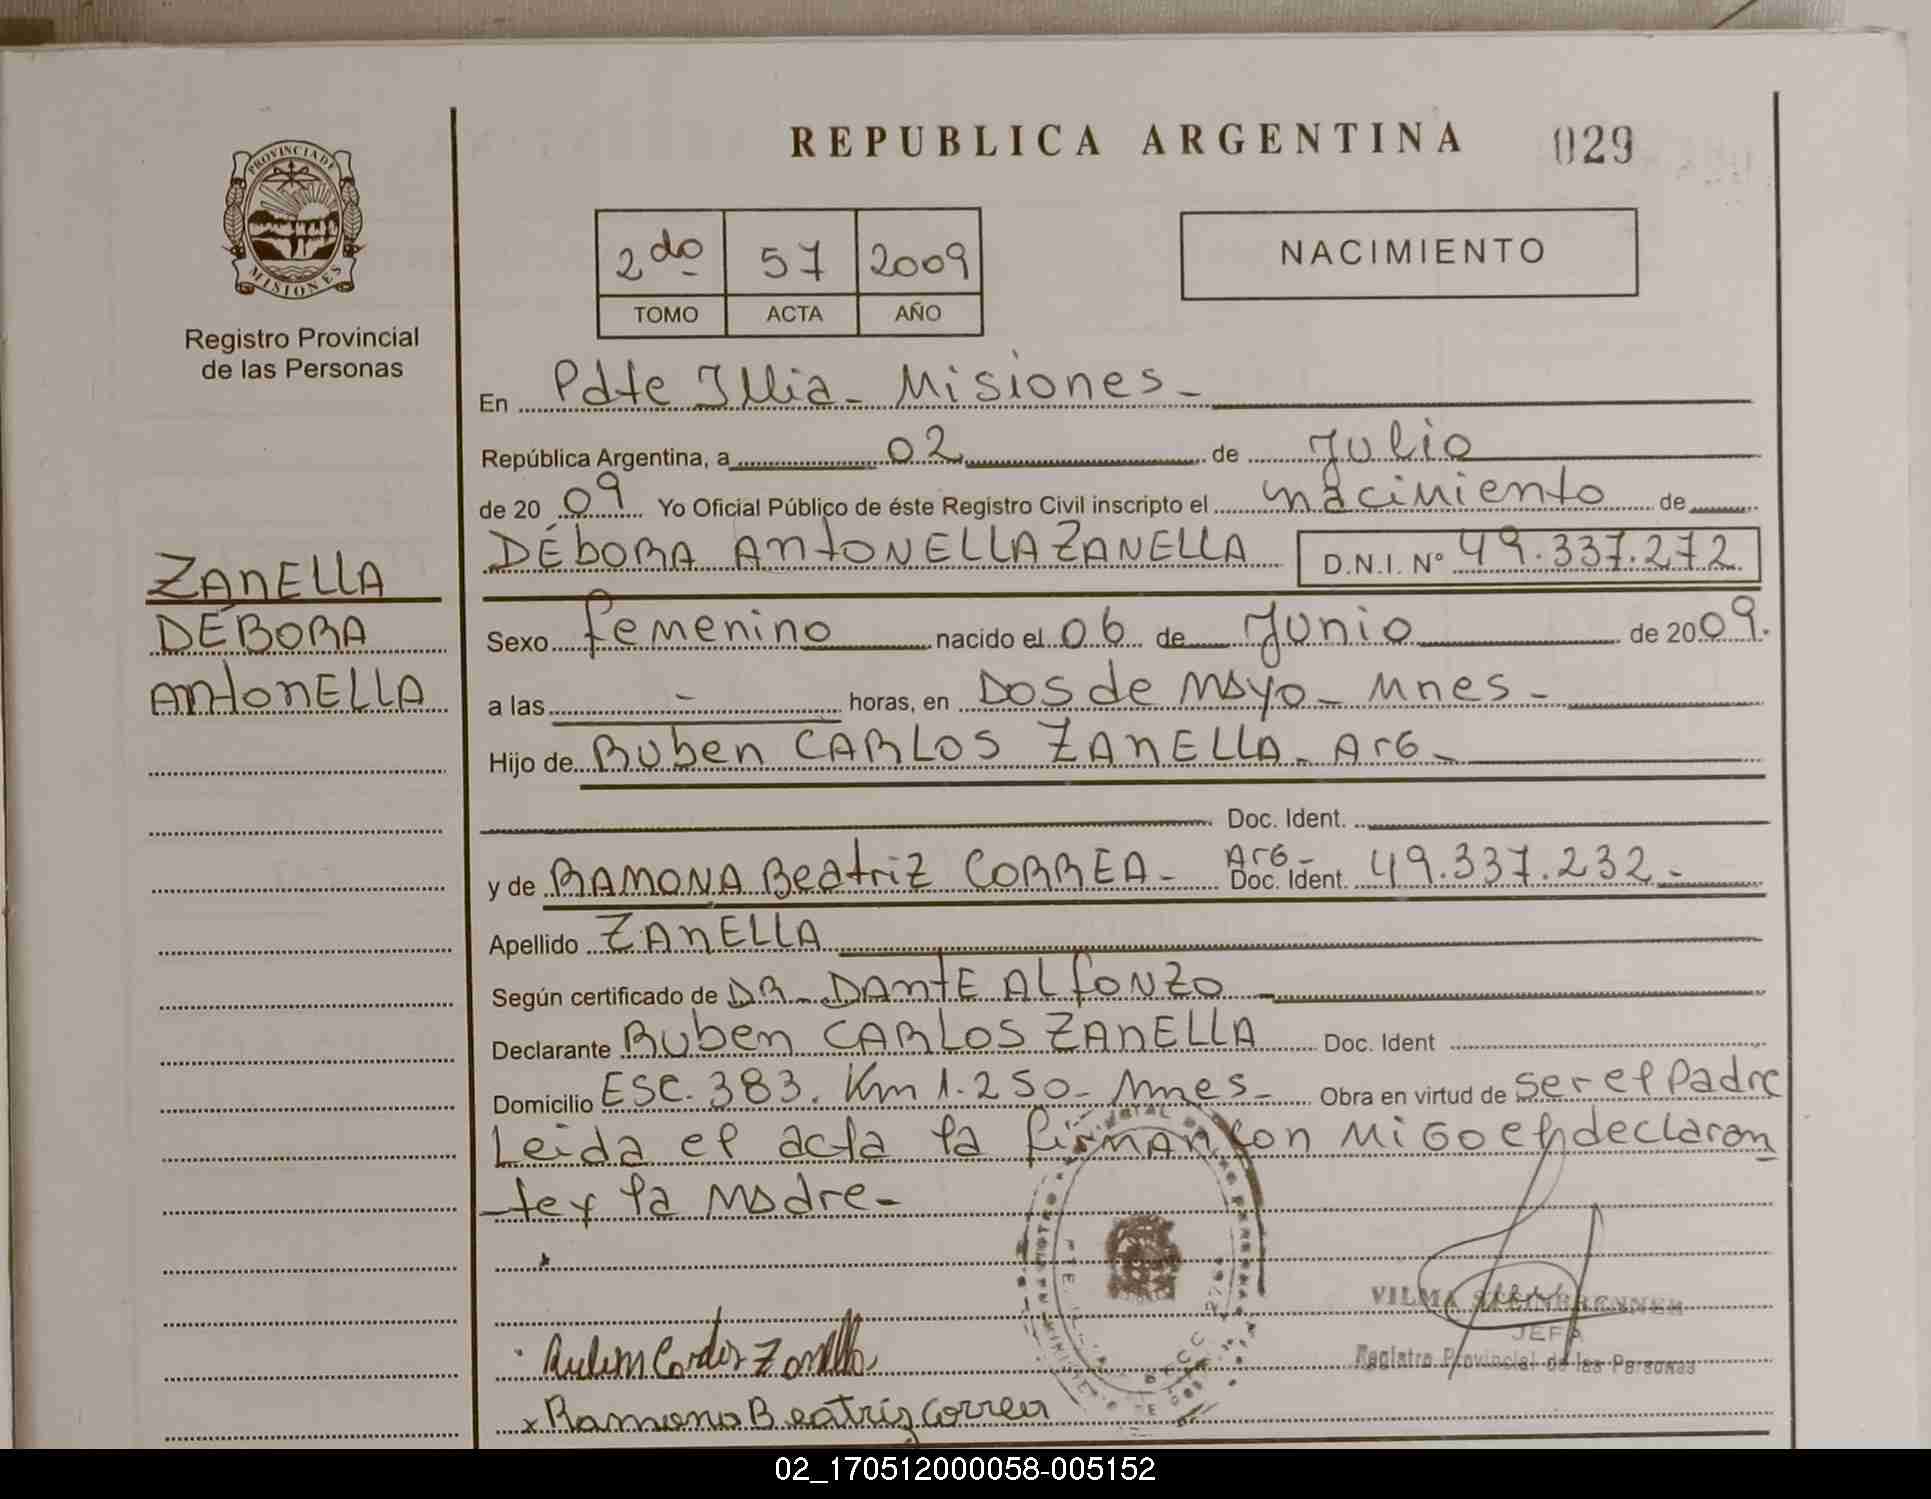 REPUBLICA ARGENTINA 029
PROVINCIA DE
MISIONES
Registro Provincial
de las Personas
2do 57 2009
TOMO ACTA AÑO
NACIMIENTO
En Pdte Illia - Misiones -
República Argentina, a 02 de Julio
de 20 09 Yo Oficial Público de éste Registro Civil inscripto el nacimiento de
DÉBORA ANTONELLA ZANELLA D.N.I. Nº 49.337.272
ZANELLA
DÉBORA
ANTONELLA
Sexo femenino nacido el 06 de Junio de 20 09.
a las - horas, en Dos de Mayo - Mnes -
Hijo de Ruben CARLOS ZANELLA - Arg -
Doc. Ident.
y de RAMONA Beatriz CORREA - Arg - Doc. Ident. 49.337.232 -
Apellido ZANELLA
Según certificado de DR. DANTE ALFONZO
Declarante Ruben CARLOS ZANELLA Doc. Ident
Domicilio ESC. 383. Km 1.250 - Mnes - Obra en virtud de ser el Padre
Leida el acta la firman con migo el declaran
te y la Madre -
VILMA STEINBRENNER
JEFA
Registro Provincial de las Personas
Ruben Carlos Zanella
x Ramona Beatriz Correa
02_170512000058-005152